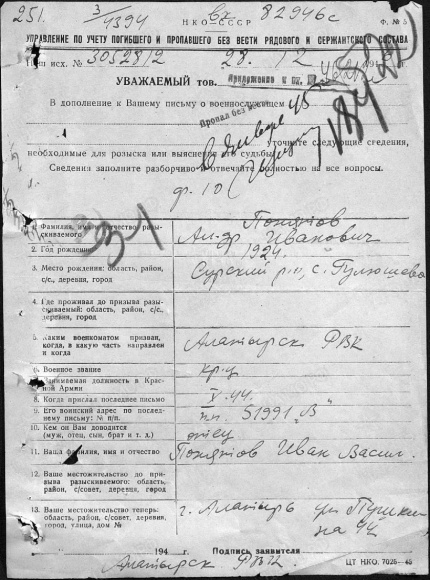 251. 3/4394 НКО—СССР вх 82946с Ф. № 5
УПРАВЛЕНИЕ ПО УЧЕТУ ПОГИБШЕГО И ПРОПАВШЕГО БЕЗ ВЕСТИ РЯДОВОГО И СЕРЖАНТСКОГО СОСТАВА
Наш исх. № 3052812 28. 12 194
УВАЖАЕМЫЙ тов.
В дополнение к Вашему письму о военнослужащем
Пропал без вести
уточните следующие сведения,
необходимые для розыска или выяснения его судьбы.
Сведения заполните разборчиво и отвечайте полностью на все вопросы.
1. Фамилия, имя и отчество разыскиваемого
Ал-др Иванович
2. Год рождения 1924.
3. Место рождения: область, район, с/с., деревня, город
Сурский р-н, с. Гулюшево
4. Где проживал до призыва разыскиваемый: область, район, с/с., деревня, город
5. Каким военкоматом призван, когда, в какую часть направлен и когда
Алатырск РВК
6. Военное звание кр-ц
7. Занимаемая должность в Красной Армии
8. Когда прислал последнее письмо V.44.
9. Его воинский адрес по последнему письму: № п/п. пп. 51991 „В"
10. Кем он Вам доводится (муж, отец, сын, брат и т. д.)
отец
11. Ваша фамилия, имя и отчество Иван Васил.
12. Ваше местожительство до призыва разыскиваемого: область, район, с/совет, деревня, город
13. Ваше местожительство теперь: область, район, с/совет, деревня, город, улица, дом №
г. Алатырь ул Пушки
на 44
194 г. Подпись заявителя
Алатырск РВК ЦТ НКО. 7025—45